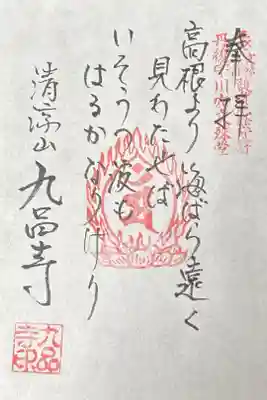 奉拝
高根より 海ばら遠く
見わたせば
いそうつ波も
はるかなりけり
清涼山 九品寺
九品寺印